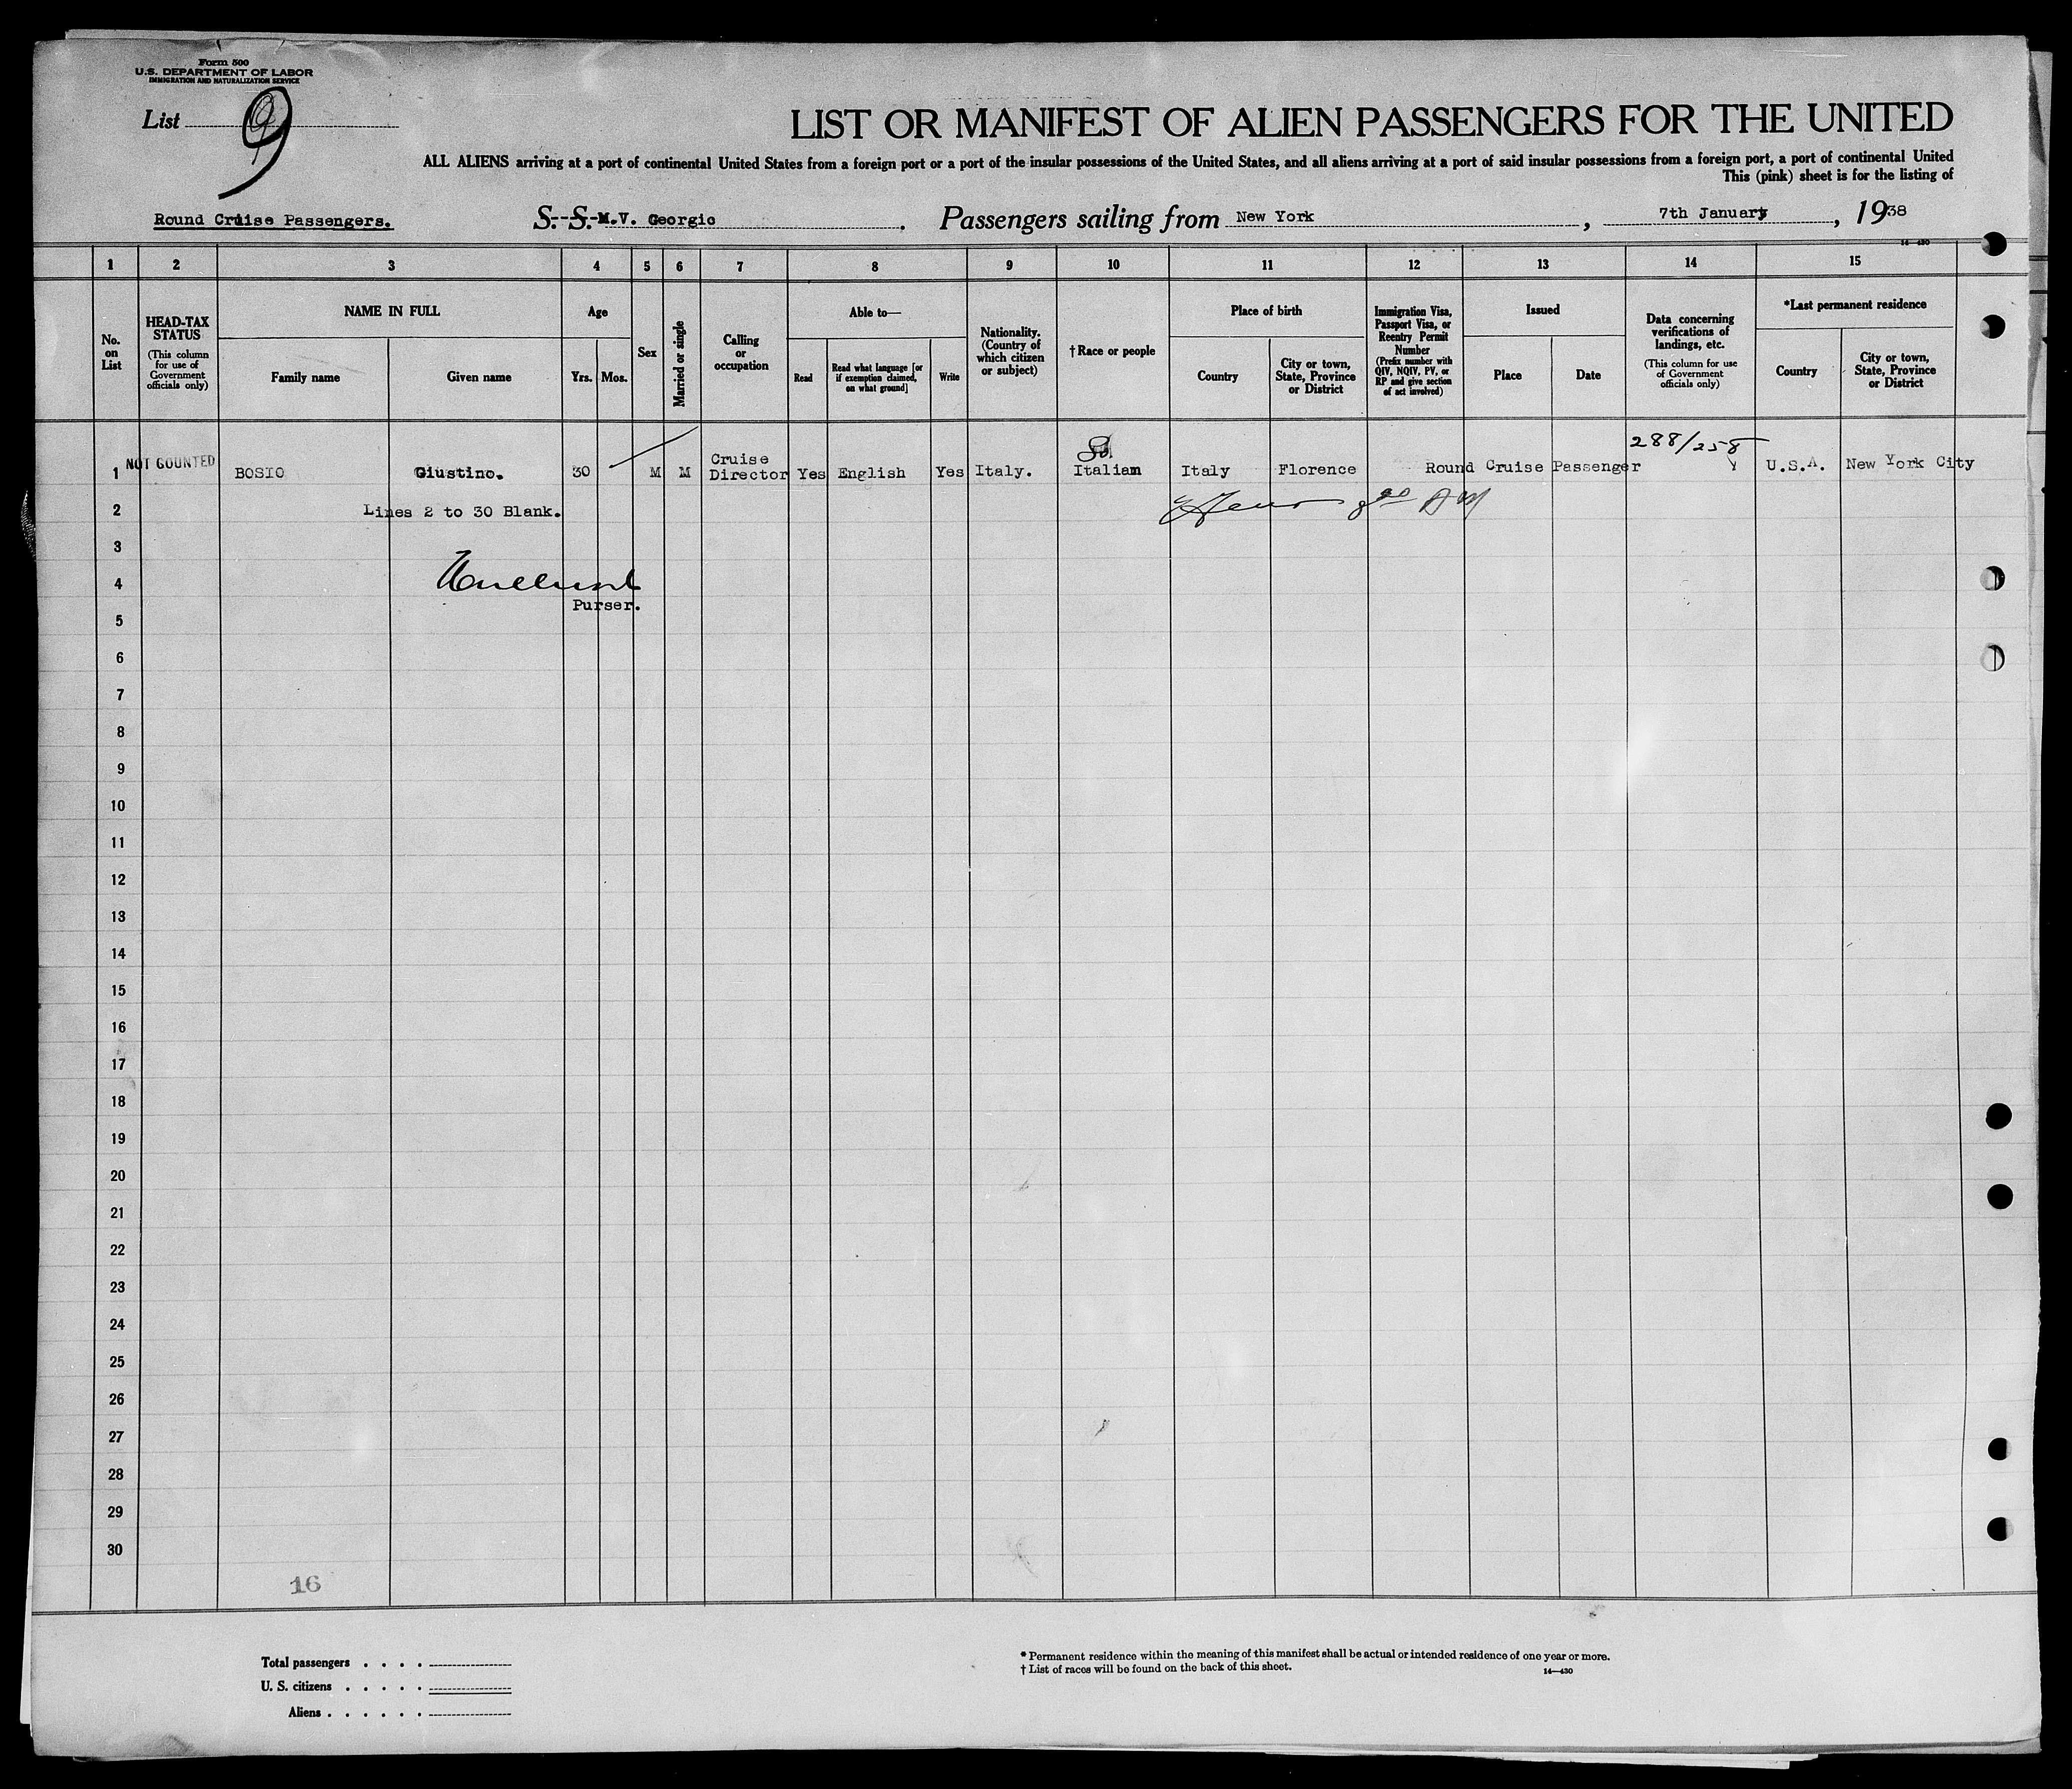 Form 500
U.S. DEPARTMENT OF LABOR
IMMIGRATION AND NATURALIZATION SERVICE
List 9
LIST OR MANIFEST OF ALIEN PASSENGERS FOR THE UNITED
ALL ALIENS arriving at a port of continental United States from a foreign port or a port of the insular possessions of the United States, and all aliens arriving at a port of said insular possessions from a foreign port, a port of continental United
This (pink) sheet is for the listing of
Round Cruise Passengers. S. S. M.V. Georgic. Passengers sailing from New York, 7th January, 1938
14-430
1 2 3 4 5 6 7 8 9 10 11 12 13 14 15
No. on List
HEAD-TAX STATUS
(This column for use of Government officials only)
NAME IN FULL
Family name Given name
Age
Yrs. Mos.
Sex
Married or single
Calling or occupation
Able to—
Read
Read what language [or if exemption claimed, on what ground]
Write
Nationality. (Country of which citizen or subject)
†Race or people
Place of birth
Country
City or town, State, Province or District
Immigration Visa, Passport Visa, or Reentry Permit Number
(Prefix number with QIV, NQIV, PV, or RP and give section of act involved)
Issued
Place Date
Data concerning verifications of landings, etc.
(This column for use of Government officials only)
*Last permanent residence
Country
City or town, State, Province or District
288/258
1 NOT COUNTED BOSIO Giustino. 30 M M Cruise Director Yes English Yes Italy. So. Italian Italy Florence Round Cruise Passenger U.S.A. New York City
2 Lines 2 to 30 Blank.
3
4
Purser.
5
6
7
8
9
10
11
12
13
14
15
16
17
18
19
20
21
22
23
24
25
26
27
28
29
30
16
Total passengers . . . .
U. S. citizens . . . . .
Aliens . . . . . .
* Permanent residence within the meaning of this manifest shall be actual or intended residence of one year or more.
† List of races will be found on the back of this sheet.
14—430